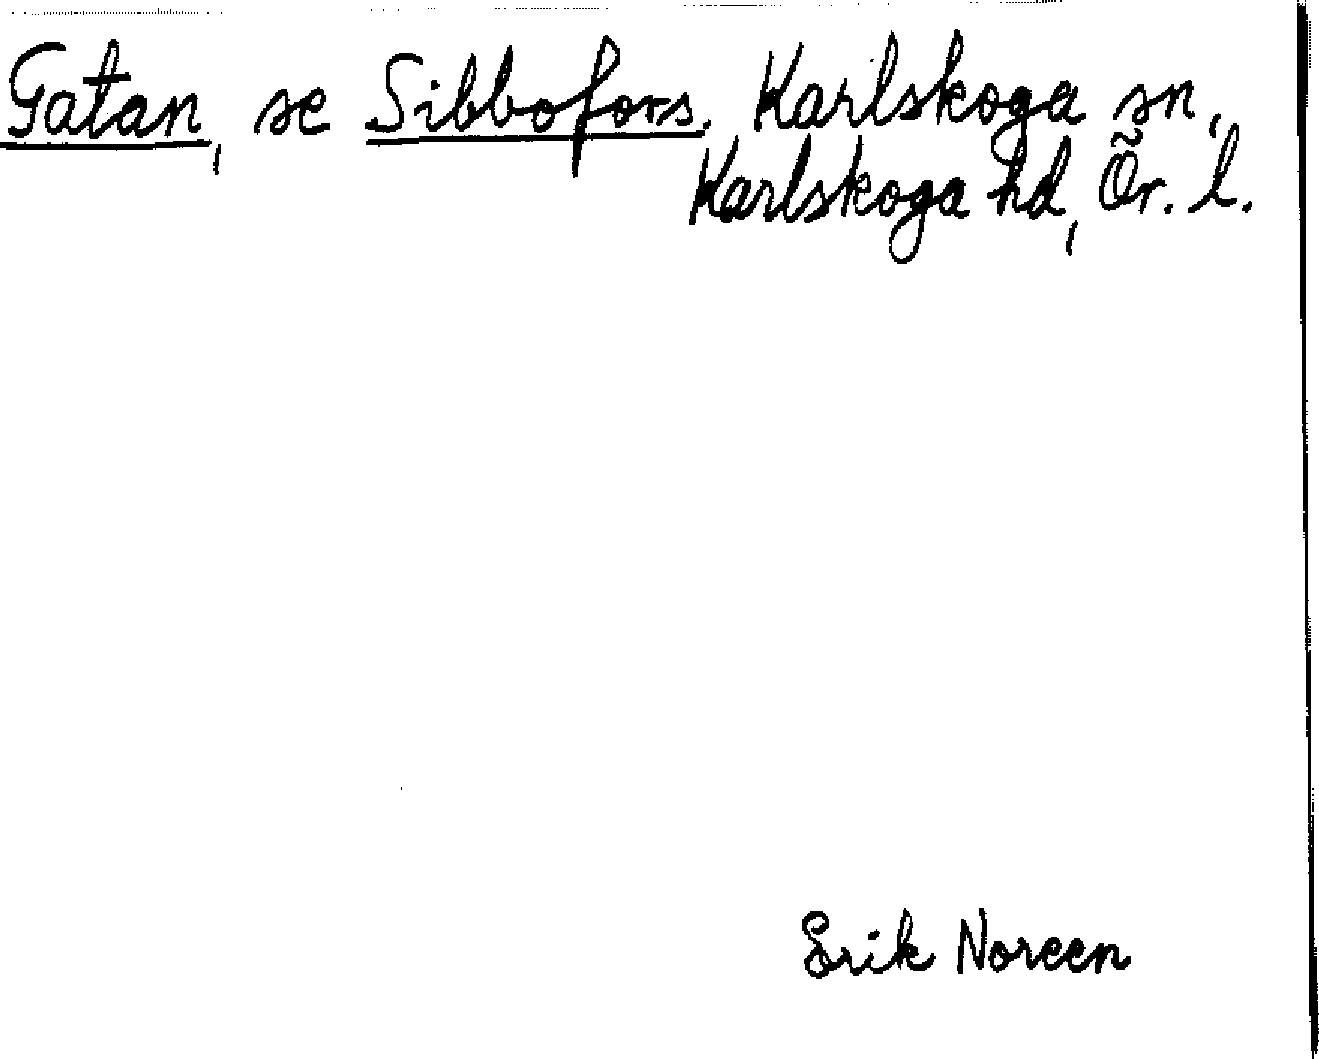 Gatan, se Sibbofors. Karlskoga sn,
Karlskoga hd, Ör. l.
Erik Noreen